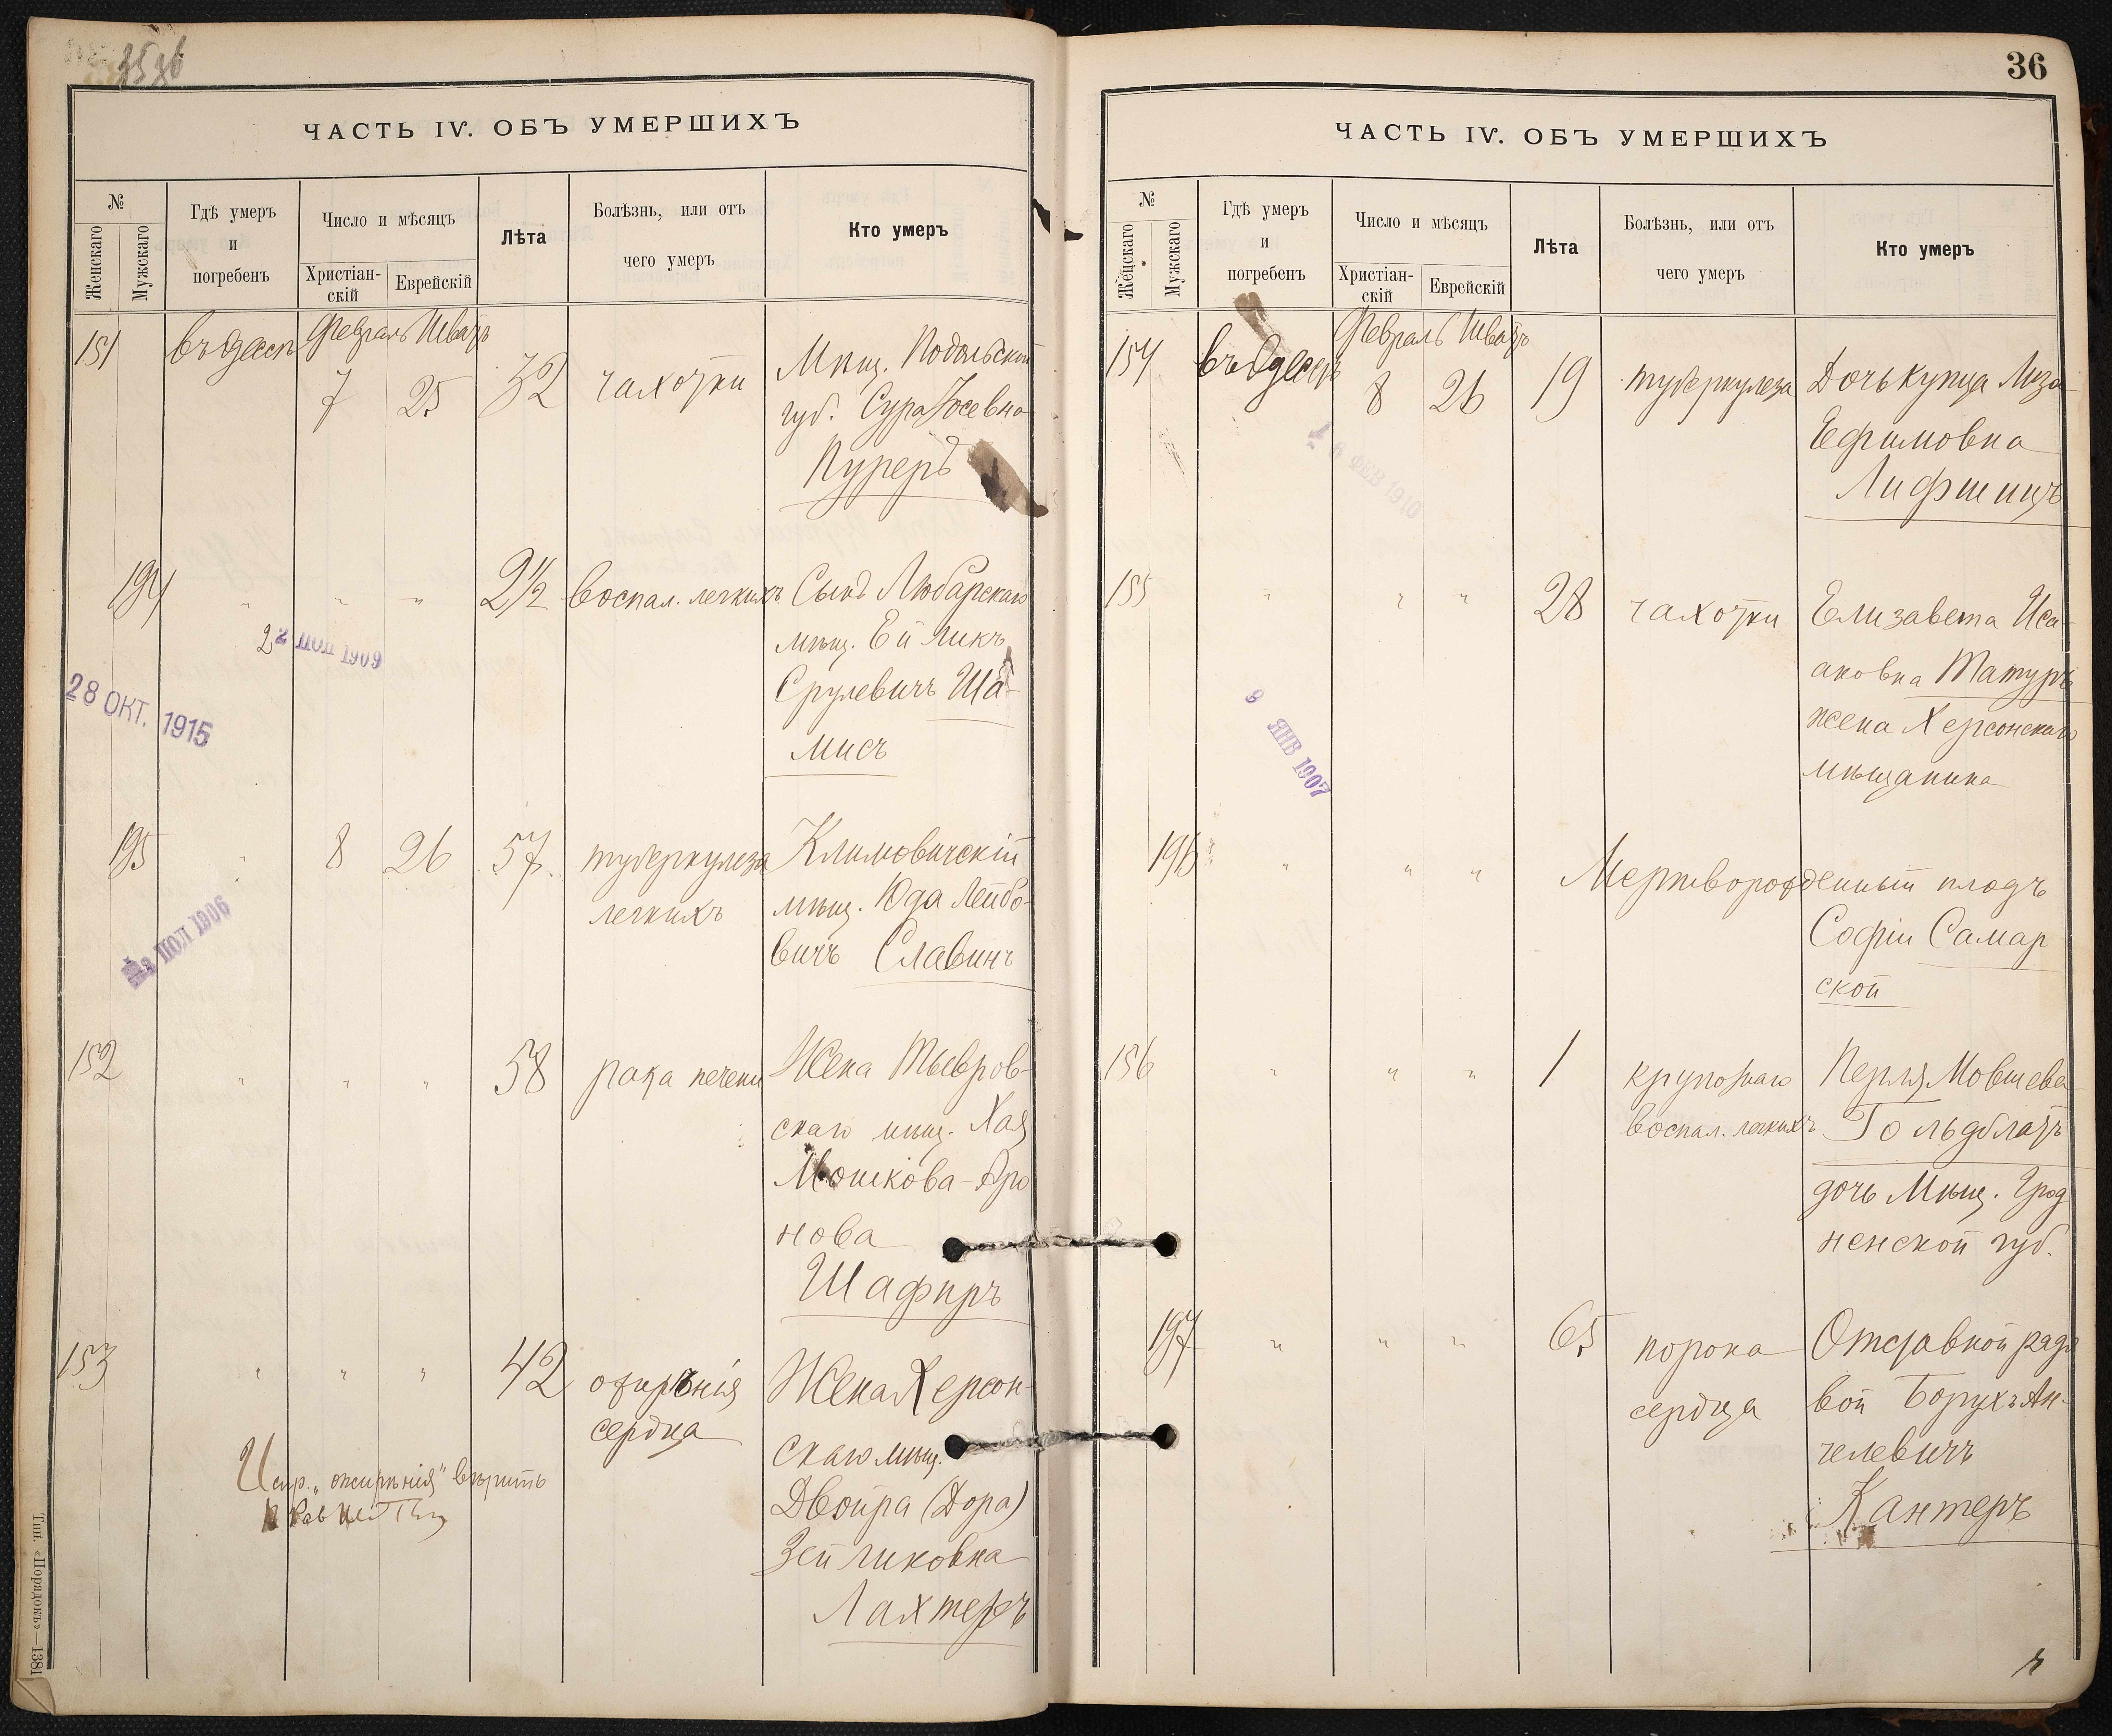 3536
ЧАСТЬ IV. ОБЪ УМЕРШИХЪ
№
Женскаго
Мужскаго
Гдѣ умеръ
и
погребенъ
Число и мѣсяцъ
Христіан-
скій
Еврейскій
Лѣта
Болѣзнь, или отъ
чего умеръ
Кто умеръ
151
въ Одессѣ
Февраль Шватъ
7 25
32
чахотки
Мѣщ. Подольской
губ. Сура Іосевна
Пуреръ
194
" " "
2 1/2
воспал. легкихъ
Сынъ Любарскаго
мѣщ. Ейликъ
Срулевичъ Ша-
мисъ
22 ІЮЛ 1909
28 ОКТ. 1915
195
" 8 26
57.
туберкулеза
легкихъ
Климовичскій
мѣщ. Юда Лейбо-
вичъ Славинъ
ІЮЛ 1906
152
" " "
58
рака печени
Жена Тывров-
скаго мѣщ. Хая
Мошкова-Аро
нова
Шафиръ
153
" " "
42
ожирѣнія
сердца
Жена Херсон-
скаго мѣщ.
Двойра (Дора)
Зейликовна
Лахтеръ
Испр. „ожирѣнія" вѣрить
Тип. «Порядокъ»—1381
36
ЧАСТЬ IV. ОБЪ УМЕРШИХЪ
№
Женскаго
Мужскаго
Гдѣ умеръ
и
погребенъ
Число и мѣсяцъ
Христіан-
скій
Еврейскій
Лѣта
Болѣзнь, или отъ
чего умеръ
Кто умеръ
154
въ Одессѣ
Февраль Шватъ
8 26
19
туберкулеза
Дочь купца Лиза
Ефимовна
Лифшицъ
ФЕВ 1910
155
" " "
28
чахотки
Елизавета Иса-
аковна Татуръ
жена Херсонскаго
мѣщанина
8 ЯНВ 1907
196
" " "
Мертворожденный плодъ
Софіи Самар
ской
156
" " "
1
крупознаго
воспал. легкихъ
Перля Мовшева
Гольдблатъ
дочь Мѣщ. Грод
ненской губ.
197
" " "
65
порока
сердца
Отставной рядо
вой Борухъ Ан-
челевичъ
Кантеръ